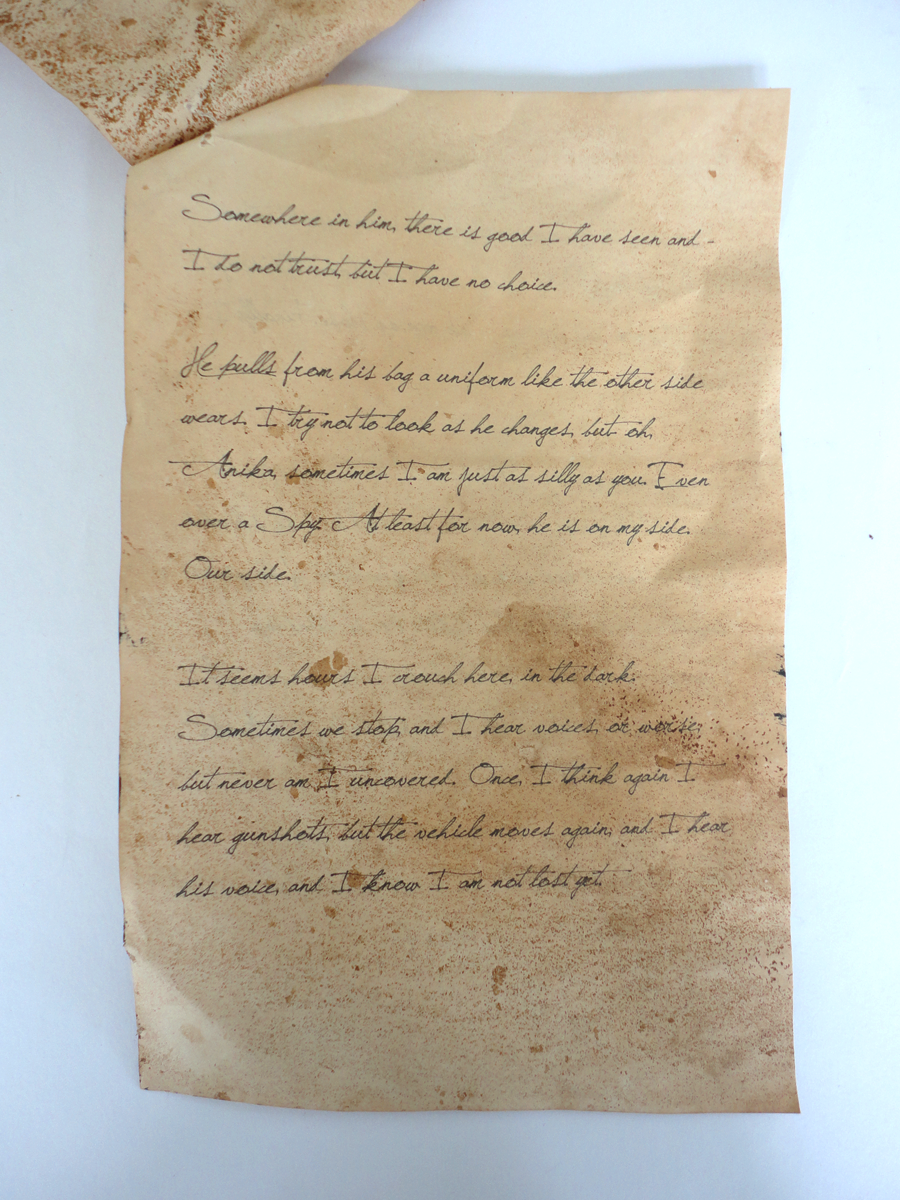 Somewhere in him, there is good I have seen and -
I do not trust, but I have no choice.
He pulls from his bag a uniform like the other side
wears. I try not to look as he changes, but oh,
Anika, sometimes I am just as silly as you. Even
over a Spy. At least for now, he is on my side.
Our side.
It seems hours I crouch here, in the dark.
Sometimes we stop, and I hear voices, or worse,
but never am I uncovered. Once, I think again I
hear gunshots, but the vehicle moves again, and I hear
his voice, and I know I am not lost yet.